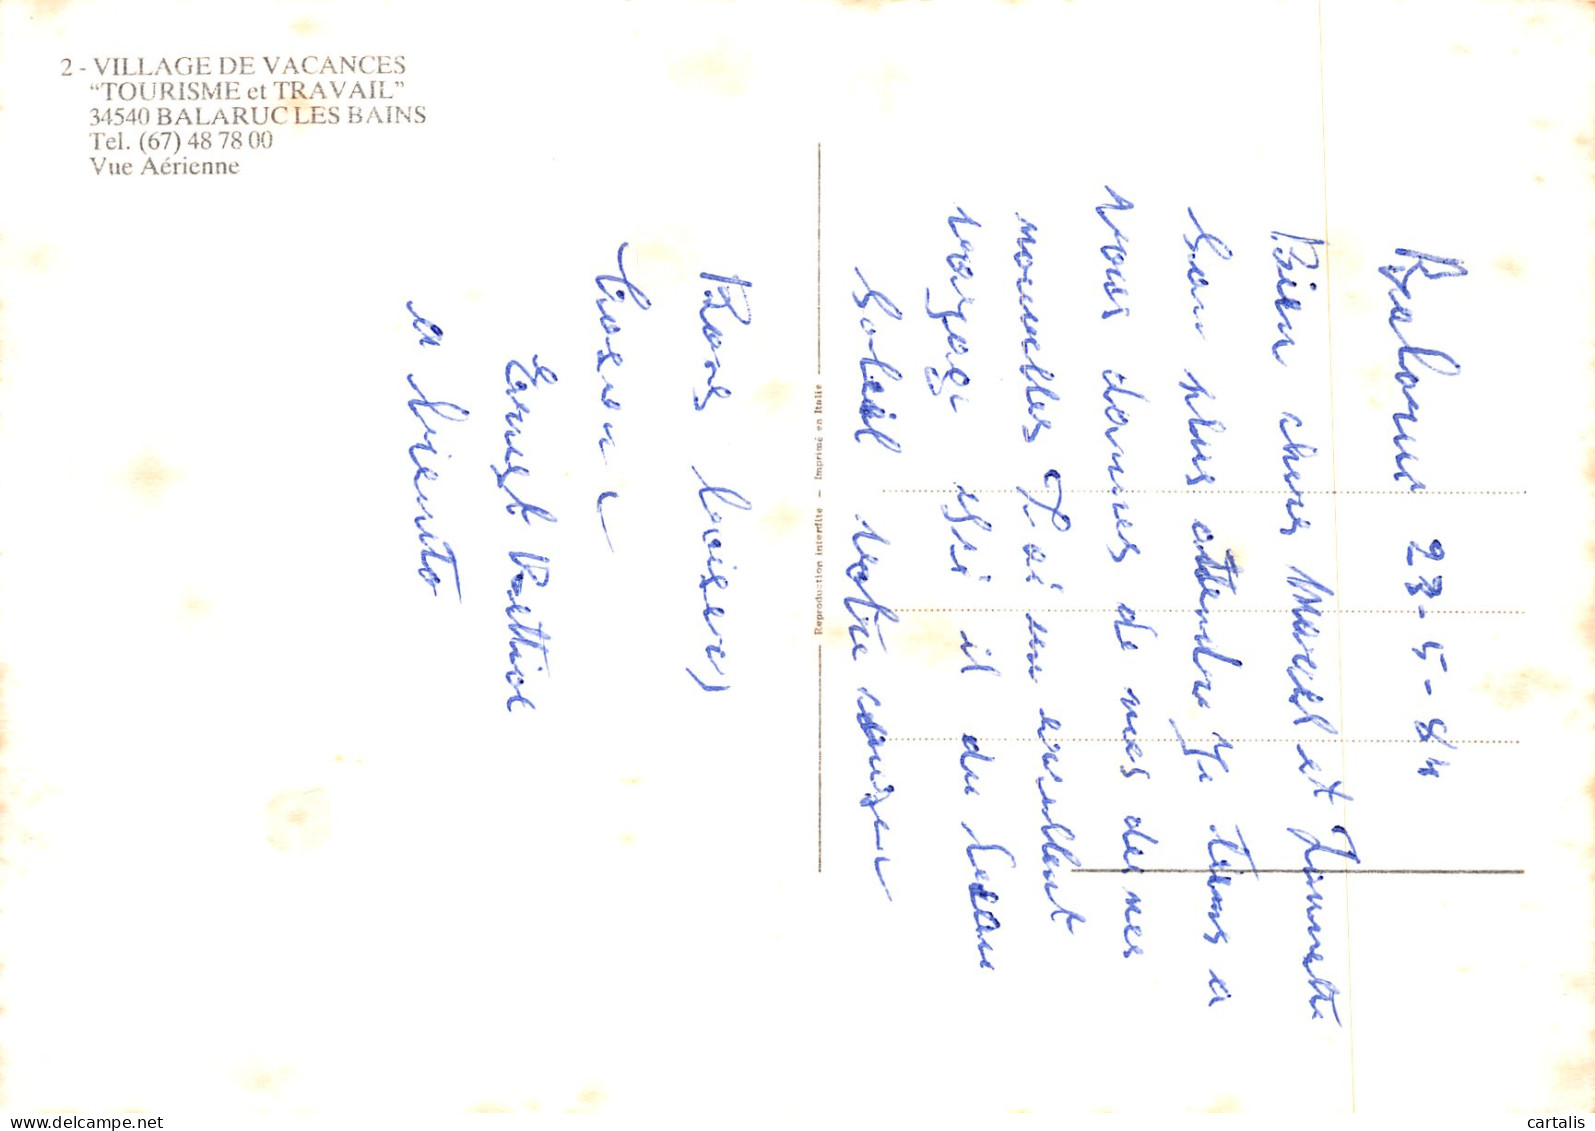 2 - VILLAGE DE VACANCES
"TOURISME et TRAVAIL"
34540 BALARUC LES BAINS
Tel. (67) 48 78 00
Vue Aérienne
Reproduction interdite – Imprimé en Italie
Balaruc 23-5-84
Bien chers Marcel et Jinnette
San plus attendre je tiens a
vous donnes de mes de nes
nouvelles J'ai un exellent
voyage issi il du beeau
Soleil votre cousin
Bons baisers
Ernest
a biento
www.delcampe.net
cartalis